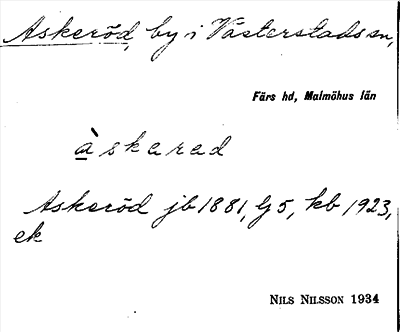 Askeröd, by i Västerstads sn,
Färs hd, Malmöhus län
àskarad
Askeröd jb 1881, G5, kb 1923,
ek
NILS NILSSON 1934